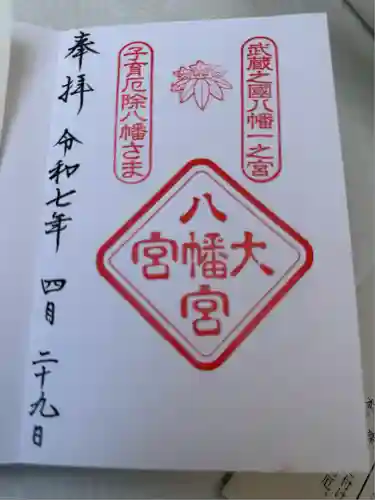 武蔵之國八幡一之宮
子育厄除八幡さま
大宮八幡宮
奉拝 令和七年 四月 二十九日